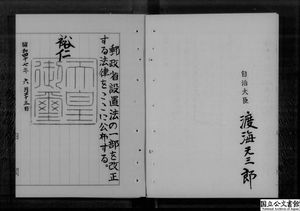 自治大臣 渡海元三郎
郵政省設置法の一部を改正
する法律をここに公布する。
裕仁
天皇
御璽
昭和四十七年六月十三日
国立公文書館
National Archives of Japan